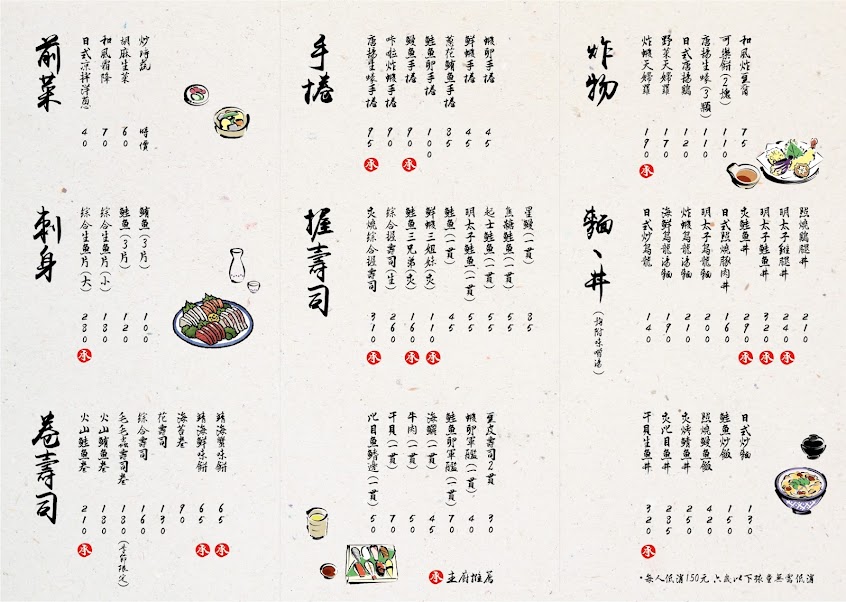 前菜
日式涼拌洋蔥 40
和風霜降 70
胡麻生菜 60
炒時蔬 時價
刺身
綜合生魚片(大) 280 承
綜合生魚片(小) 180
鮭魚(3片) 120
鮪魚(3片) 100
卷壽司
火山鮭魚卷 210 承
火山鮪魚卷 180
毛毛蟲壽司卷 180(季節限定)
綜合壽司 160
花壽司 130
海苔卷 90
鯖海鮮味餅 65 承
鯖海蟹味餅 65 承
手捲
唐揚生蠔手捲 95 承
咔啦炸蝦手捲 90
鰻魚手捲 90 承
鮭魚卵手捲 100
蔥花鮪魚手捲 85
鮮蝦手捲 45
蝦卵手捲 45
握壽司
炙燒綜合握壽司 310 承
綜合握壽司(生) 260
鮭魚三兄弟(炙) 160 承
鮮蝦三姐妹(炙) 110 承
鮭魚(一貫) 45
明太子鮭魚(一貫) 55
起士鮭魚(一貫) 55
焦糖鮭魚(一貫) 55
星鰻(一貫) 85
比目魚鰭邊(一貫) 50
干貝(一貫) 70
牛肉(一貫) 50
海鱺(一貫) 45
鮭魚卵軍艦(一貫) 70
蝦卵軍艦(一貫) 40
豆皮壽司2貫 30
承 主廚推薦
炸物
炸蝦天婦羅 190 承
野菜天婦羅 170
日式唐揚雞 120
唐揚生蠔(3顆) 110
可樂餅(2塊) 110
和風炸豆腐 75
麵、丼(皆附味噌湯)
日式炒烏龍 140
海鮮烏龍湯麵 190
炸蝦烏龍湯麵 210
明太子烏龍麵 200
日式照燒豚肉丼 160
炙鮭魚丼 290 承
明太子鮭魚丼 320 承
明太子雞腿丼 240 承
照燒雞腿丼 210
干貝生魚丼 320 承
炙比目魚丼 285
炙烤鯖魚丼 250
照燒鰻魚飯 420
鮭魚炒飯 150
日式炒麵 130
•每人低消150元 六歲以下孩童無需低消